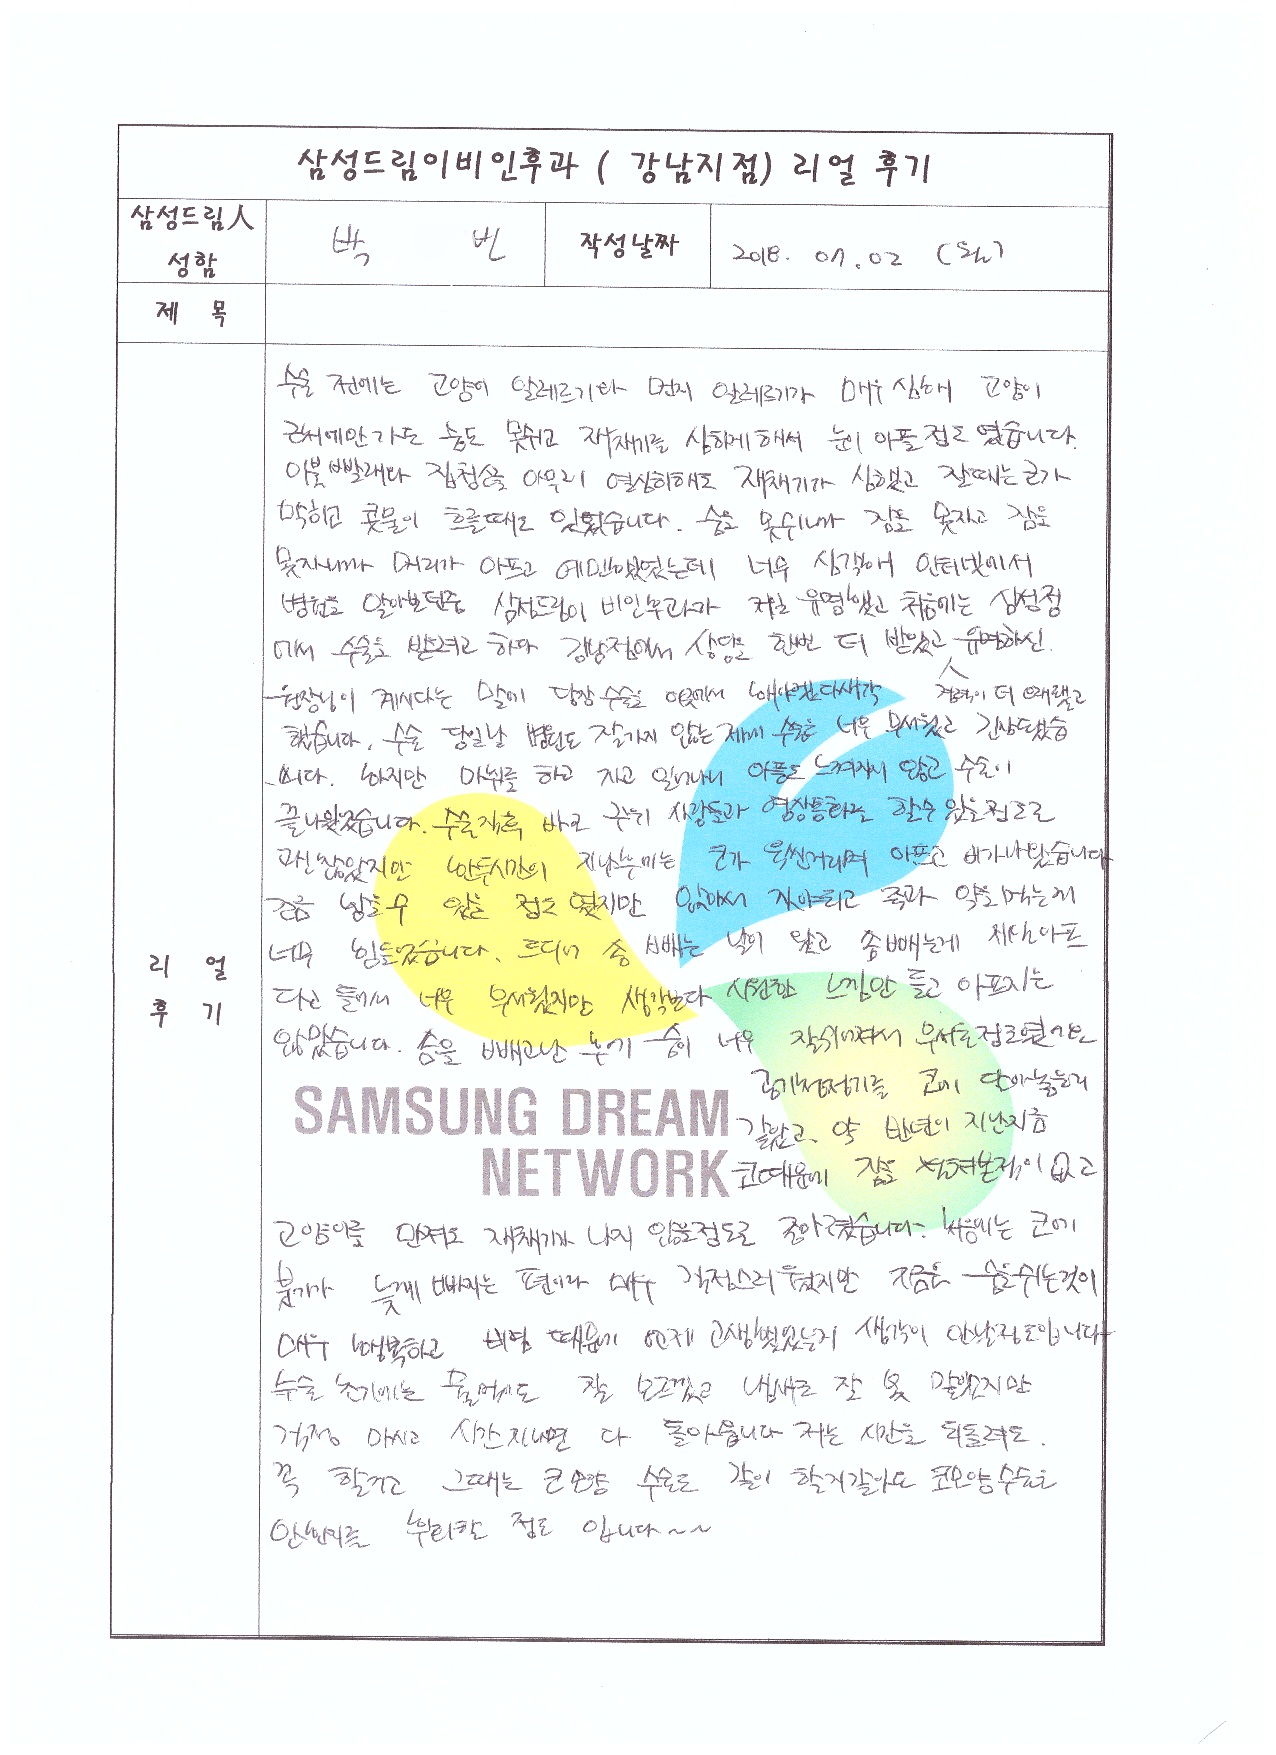 삼성드림이비인후과 ( 강남지점) 리얼 후기
삼성드림人
성함
박 빈
작성날짜
2018. 07. 02 (월)
제 목
리 얼
후 기
수술 전에는 고양이 알레르기와 먼지 알레르기가 매우 심해 고양이
근처에만 가도 숨도 못쉬고 재채기를 심하게 해서 눈이 아플 정도 였습니다.
이불 빨래다 집청소를 아무리 열심히해도 재채기가 심했고 잘때는 코가
막히고 콧물이 흐를때도 있었습니다. 숨을 못쉬니까 잠도 못자고 잠을
못자니까 머리가 아프고 예민했었는데 너무 심각해 인터넷에서
병원을 알아보던중 삼성드림이비인후과가 제일 유명했고 처음에는 삼성점
에서 수술을 받으려고 하다 강남점에서 상담을 한번 더 받았고 유명하신
원장님이 계시다는 말에 당장 수술을 여기서 해야겠다생각 경력이 더 오래됐고
했습니다. 수술 당일날 병원도 잘가지 않는 제게 수술은 너무 무서웠고 긴장됐습
니다. 하지만 마취를 하고 자고 일어나니 아픔도 느껴지지 않고 수술이
끝나있었습니다. 수술직후 바로 주위 사람들과 영상통화도 할수 있을정도로
괜찮았지만 한두시간이 지난후에는 코가 욱씬거리며 아프고 피가나왔습니다
참을 수 있을 정도 였지만 앉아서 자야되고 죽과 약을 먹는게
너무 힘들었습니다. 드디어 솜 빼는 날이 왔고 솜빼는게 제일아프
다고 들어서 너무 무서웠지만 생각보다 시원한 느낌만 들고 아프지는
않았습니다. 솜을 빼고난 후에 숨이 너무 잘쉬어져서 무서울정도였거든
공기청정기를 코에 달아놓은거
같았고, 약 반년이 지난지금
코때문에 잠을 설쳐본적이 없고
고양이를 만져도 재채기가 나지 않을정도로 좋아졌습니다. 처음에는 코에
붓기가 늦게 빠지는 편이라 매우 걱정스러웠지만 지금은 숨을쉬는것이
매우 행복하고 비염 때문에 언제 고생했었는지 생각이 안날정도입니다
수술 초기에는 무얼먹어도 잘 모르겠고 냄새도 잘 못 맡았지만
걱정 마시고 시간지나면 다 돌아옵니다 저는 시간을 되돌려도
꼭 할거고 그때는 코모양 수술도 같이 할거같아요 코모양수술을
안한거를 후회할 정도 입니다~~
SAMSUNG DREAM
NETWORK